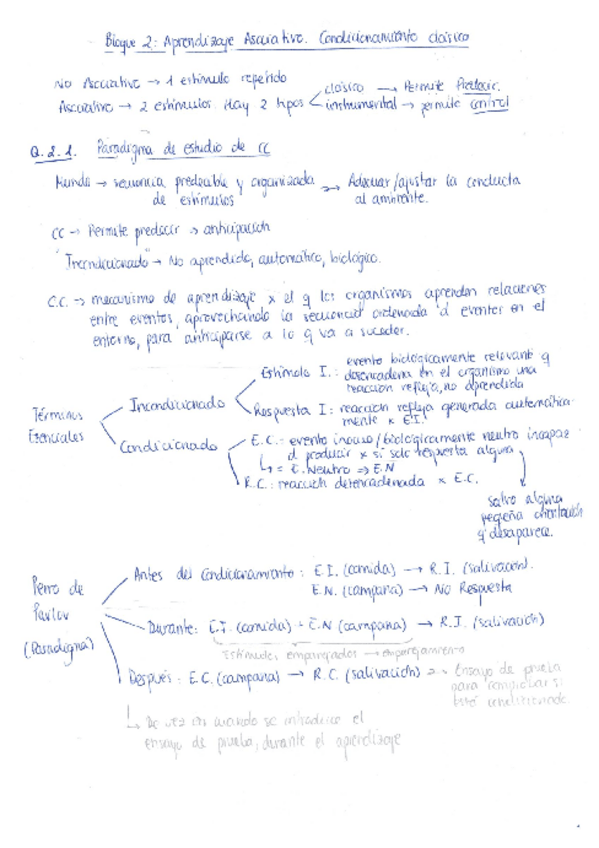 Bloque 2: Aprendizaje Asociativo. Condicionamiento clásico
No Asociativo → 1 estímulo repetido
Asociativo → 2 estímulos. Hay 2 tipos
clásico → Permite Predecir.
instrumental → permite control
Q.2.1. Paradigma de estudio de CC
Mundo → secuencia predecible y organizada de estímulos → Adecuar/ajustar la conducta al ambiente.
CC → Permite predecir → anticipación
"Incondicionado" → No aprendido, automático, biológico.
C.C. → mecanismo de aprendizaje x el q los organismos aprenden relaciones
entre eventos, aprovechando la secuencia ordenada d eventos en el
entorno, para anticiparse a lo q va a suceder.
Términos Esenciales
Incondicionado
Estímulo I.: evento biológicamente relevante q
desencadena en el organismo una
reacción refleja, no aprendida
Respuesta I: reacción refleja generada automática-
mente x E.I.
Condicionado
E.C.: evento inocuo/biológicamente neutro incapaz
d producir x si solo respuesta alguna
↳ = E. Neutro ⇒ E.N
R.C.: reacción desencadenada x E.C.
salvo alguna
pequeña
q desaparece.
Perro de
Pavlov
(Paradigma)
Antes del Condicionamiento: E.I. (comida) → R.I. (salivación).
E.N. (campana) → No Respuesta
Durante: E.I. (comida) - E.N (campana) → R.I. (salivación)
Estímulos emparejados → emparejamiento
Después: E.C. (campana) → R.C. (salivación)
Ensayo de prueba
para comprobar si
está condicionado.
↳ De vez en cuando se introduce el
ensayo de prueba, durante el aprendizaje